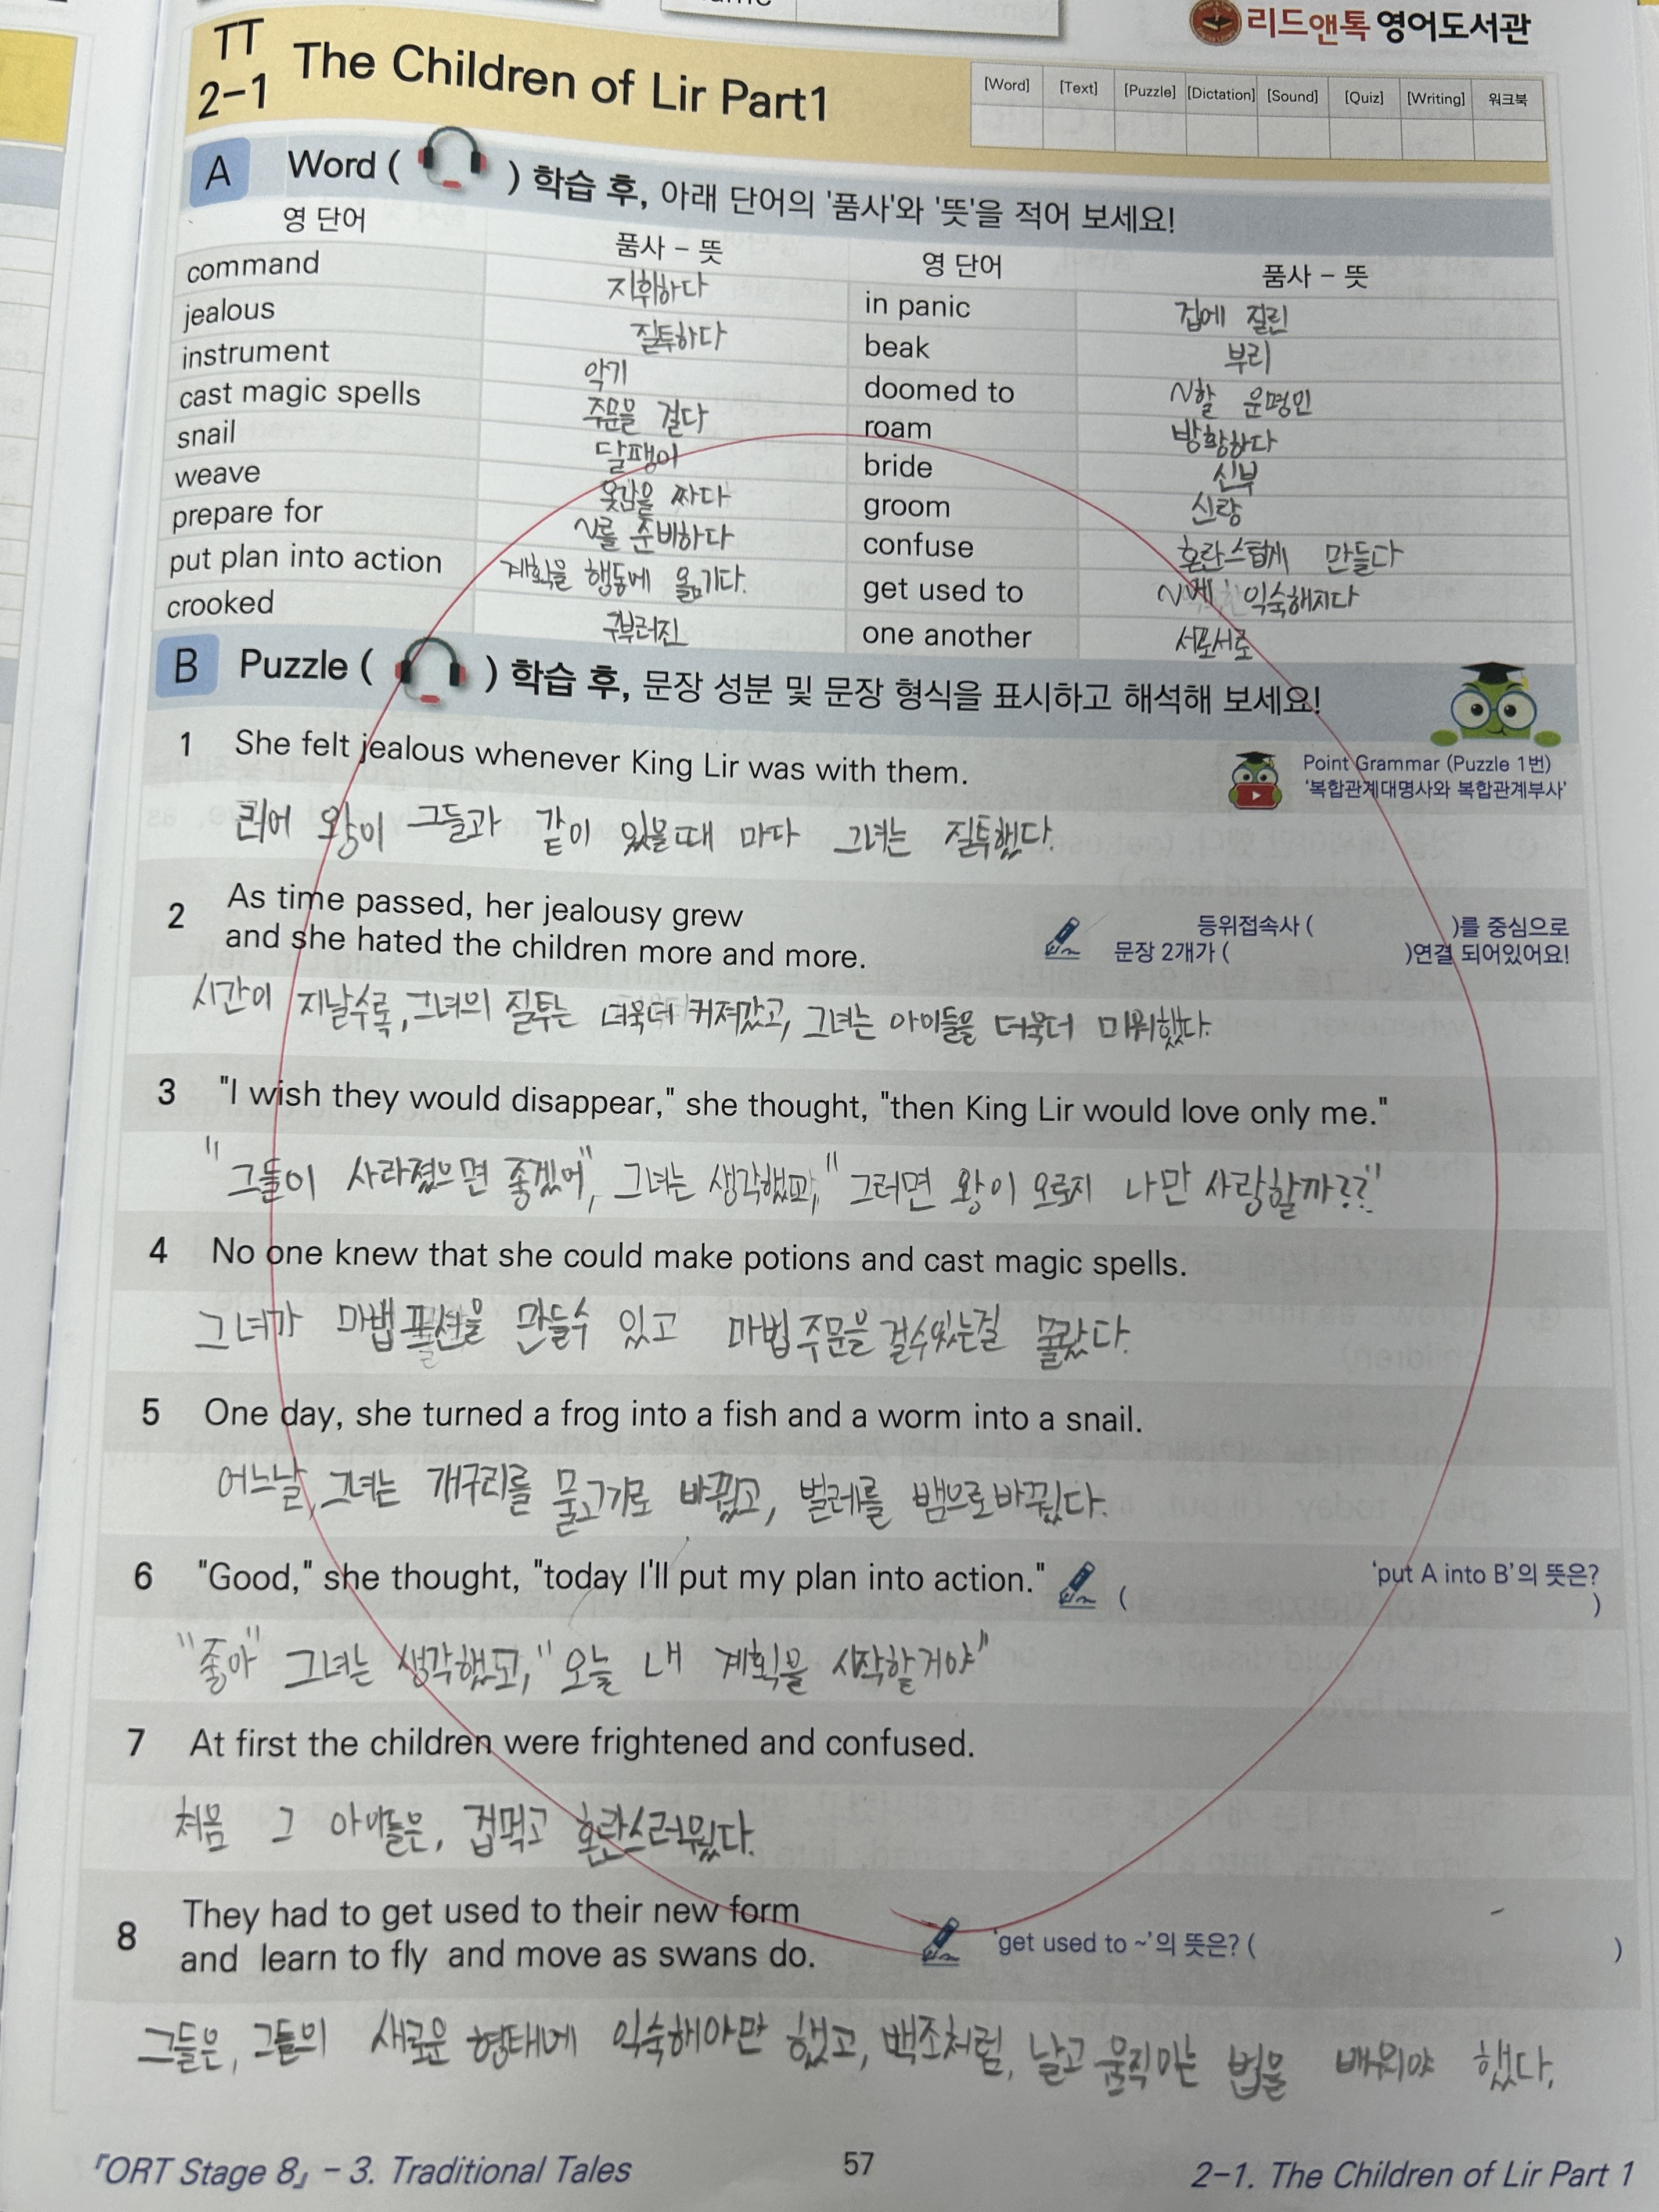 리드앤톡 영어도서관
TT 2-1 The Children of Lir Part1
[Word] [Text] [Puzzle] [Dictation] [Sound] [Quiz] [Writing] 워크북
A Word ( ) 학습 후, 아래 단어의 '품사'와 '뜻'을 적어 보세요!
영 단어 품사 – 뜻 영 단어 품사 – 뜻
command 지휘하다 in panic 겁에 질린
jealous 질투하다 beak 부리
instrument 악기 doomed to ~할 운명인
cast magic spells 주문을 걸다 roam 방황하다
snail 달팽이 bride 신부
weave 옷감을 짜다 groom 신랑
prepare for ~를 준비하다 confuse 혼란스럽게 만들다
put plan into action 계획을 행동에 옮기다. get used to ~에 익숙해지다
crooked 구부러진 one another 서로서로
B Puzzle ( ) 학습 후, 문장 성분 및 문장 형식을 표시하고 해석해 보세요!
1 She felt jealous whenever King Lir was with them.
Point Grammar (Puzzle 1번)
'복합관계대명사와 복합관계부사'
리어 왕이 그들과 같이 있을때 마다 그녀는 질투했다.
2 As time passed, her jealousy grew
and she hated the children more and more.
등위접속사 ( )를 중심으로
문장 2개가 ( )연결 되어있어요!
시간이 지날수록, 그녀의 질투는 더욱더 커져갔고, 그녀는 아이들을 더욱더 미워했다.
3 "I wish they would disappear," she thought, "then King Lir would love only me."
"그들이 사라졌으면 좋겠어", 그녀는 생각했고, "그러면 왕이 오로지 나만 사랑할까??"
4 No one knew that she could make potions and cast magic spells.
그녀가 마법 포션을 만들수 있고 마법 주문을 걸수있는걸 몰랐다.
5 One day, she turned a frog into a fish and a worm into a snail.
어느날, 그녀는 개구리를 물고기로 바꿨고, 벌레를 뱀으로 바꿨다.
6 "Good," she thought, "today I'll put my plan into action."
'put A into B'의 뜻은?
( )
"좋아" 그녀는 생각했고, "오늘 내 계획을 시작할거야"
7 At first the children were frightened and confused.
처음 그 아이들은, 겁먹고 혼란스러웠다.
8 They had to get used to their new form
and learn to fly and move as swans do.
'get used to ~'의 뜻은? ( )
그들은, 그들의 새로운 형태에 익숙해야만 했고, 백조처럼, 날고 움직이는 법을 배워야 했다.
『ORT Stage 8』 – 3. Traditional Tales 57 2-1. The Children of Lir Part 1